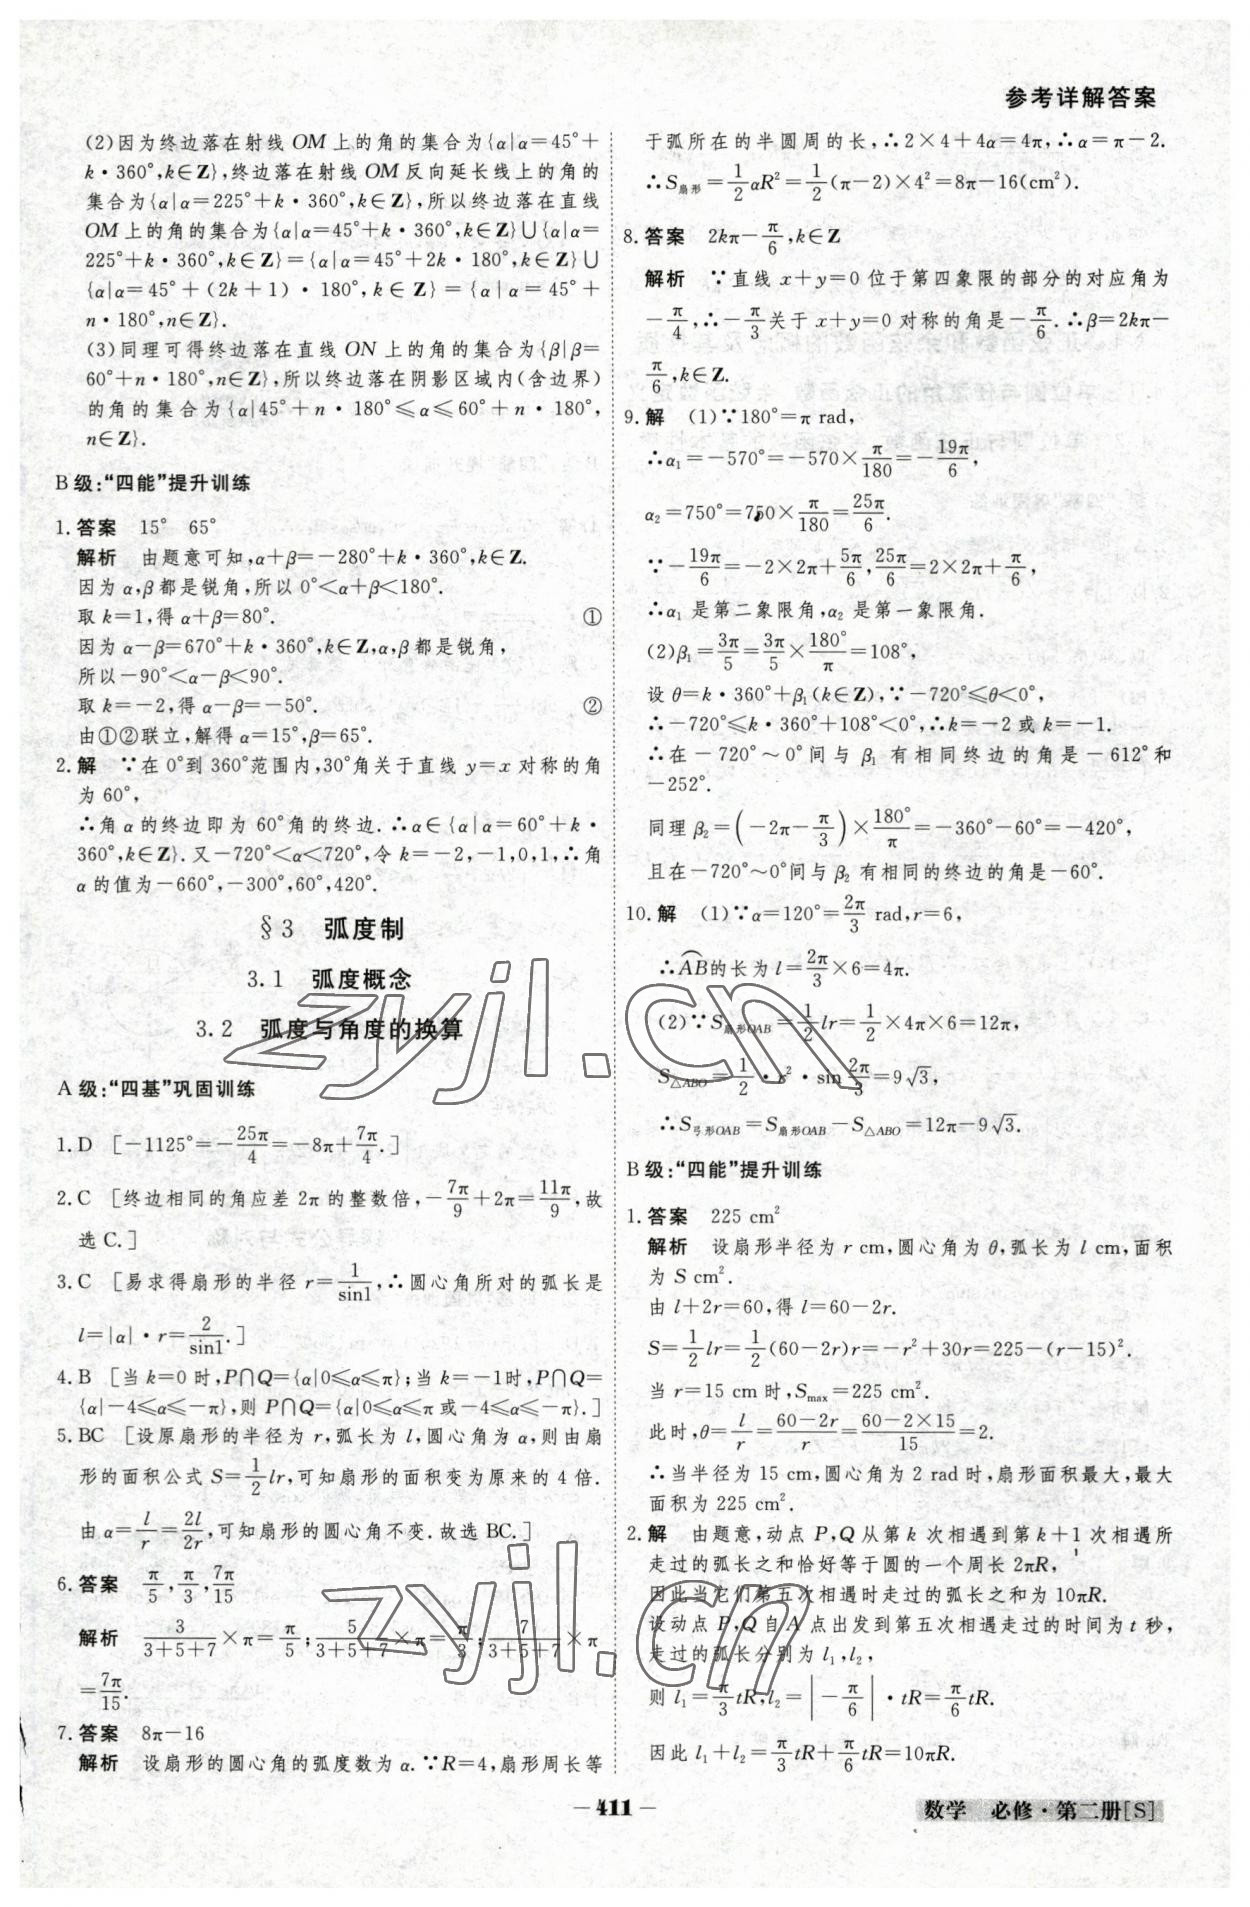 参考详解答案
(2)因为终边落在射线 OM 上的角的集合为{α|α=45°+
k·360°,k∈Z},终边落在射线 OM 反向延长线上的角的
集合为{α|α=225°+k·360°,k∈Z},所以终边落在直线
OM 上的角的集合为{α|α=45°+k·360°,k∈Z}∪{α|α=
225°+k·360°,k∈Z}={α|α=45°+2k·180°,k∈Z}∪
{α|α=45°+(2k+1)·180°,k∈Z}={α|α=45°+
n·180°,n∈Z}.
(3)同理可得终边落在直线 ON 上的角的集合为{β|β=
60°+n·180°,n∈Z},所以终边落在阴影区域内(含边界)
的角的集合为{α|45°+n·180°≤α≤60°+n·180°,
n∈Z}.
B 级:“四能”提升训练
1.答案 15° 65°
解析 由题意可知,α+β=-280°+k·360°,k∈Z.
因为 α,β都是锐角,所以 0°<α+β<180°.
取 k=1,得 α+β=80°. ①
因为 α-β=670°+k·360°,k∈Z,α,β都是锐角,
所以-90°<α-β<90°.
取 k=-2,得 α-β=-50°. ②
由①②联立,解得 α=15°,β=65°.
2.解 ∵在 0°到 360°范围内,30°角关于直线 y=x 对称的角
为 60°,
∴角 α 的终边即为 60°角的终边.∴α∈{α|α=60°+k·
360°,k∈Z}.又-720°<α<720°,令 k=-2,-1,0,1,∴角
α 的值为-660°,-300°,60°,420°.
§3 弧度制
3.1 弧度概念
3.2 弧度与角度的换算
A 级:“四基”巩固训练
1.D [-1125°=-25π/4=-8π+7π/4.]
2.C [终边相同的角应差 2π 的整数倍,-7π/9+2π=11π/9,故
选 C.]
3.C [易求得扇形的半径 r=1/sin1,∴圆心角所对的弧长是
l=|α|·r=2/sin1.]
4.B [当 k=0 时,P∩Q={α|0≤α≤π};当 k=-1时,P∩Q=
{α|-4≤α≤-π},则 P∩Q={α|0≤α≤π或-4≤α≤-π}.]
5.BC [设原扇形的半径为 r,弧长为 l,圆心角为 α,则由扇
形的面积公式 S=1/2lr,可知扇形的面积变为原来的 4 倍.
由 α=l/r=2l/2r,可知扇形的圆心角不变.故选 BC.]
6.答案 π/5,π/3,7π/15
解析 3/(3+5+7)×π=π/5;5/(3+5+7)×π=π/3;7/(3+5+7)×π
=7π/15.
7.答案 8π-16
解析 设扇形的圆心角的弧度数为 α.∵R=4,扇形周长等
于弧所在的半圆周的长,∴2×4+4α=4π,∴α=π-2.
∴S扇形=1/2αR²=1/2(π-2)×4²=8π-16(cm²).
8.答案 2kπ-π/6,k∈Z
解析 ∵直线 x+y=0 位于第四象限的部分的对应角为
-π/4,∴-π/3关于 x+y=0 对称的角是-π/6.∴β=2kπ-
π/6,k∈Z.
9.解 (1)∵180°=π rad,
∴α₁=-570°=-570×π/180=-19π/6,
α₂=750°=750×π/180=25π/6.
∵-19π/6=-2×2π+5π/6,25π/6=2×2π+π/6,
∴α₁ 是第二象限角,α₂ 是第一象限角.
(2)β₁=3π/5=3π/5×180°/π=108°,
设 θ=k·360°+β₁(k∈Z),∵-720°≤θ<0°,
∴-720°≤k·360°+108°<0°,∴k=-2 或 k=-1.
∴在-720°～0°间与 β₁ 有相同终边的角是-612°和
-252°.
同理 β₂=(-2π-π/3)×180°/π=-360°-60°=-420°,
且在-720°～0°间与 β₂ 有相同的终边的角是-60°.
10.解 (1)∵α=120°=2π/3 rad,r=6,
∴AB⌒的长为 l=2π/3×6=4π.
(2)∵S扇形OAB=1/2lr=1/2×4π×6=12π,
S△ABO=1/2·r²·sin2π/3=9√3,
∴S弓形OAB=S扇形OAB-S△ABO=12π-9√3.
B 级:“四能”提升训练
1.答案 225 cm²
解析 设扇形半径为 r cm,圆心角为 θ,弧长为 l cm,面积
为 S cm².
由 l+2r=60,得 l=60-2r.
S=1/2lr=1/2(60-2r)r=-r²+30r=225-(r-15)².
当 r=15 cm 时,Smax=225 cm².
此时,θ=l/r=(60-2r)/r=(60-2×15)/15=2.
∴当半径为 15 cm,圆心角为 2 rad 时,扇形面积最大,最大
面积为 225 cm².
2.解 由题意,动点 P,Q 从第 k 次相遇到第 k+1 次相遇所
走过的弧长之和恰好等于圆的一个周长 2πR,
因此当它们第五次相遇时走过的弧长之和为 10πR.
设动点 P,Q 自 A 点出发到第五次相遇走过的时间为 t 秒,
走过的弧长分别为 l₁,l₂,
则 l₁=π/3tR,l₂=|-π/6|·tR=π/6tR.
因此 l₁+l₂=π/3tR+π/6tR=10πR.
－411－
数学 必修·第二册[S]
zyjl.cn
zyjl.cn